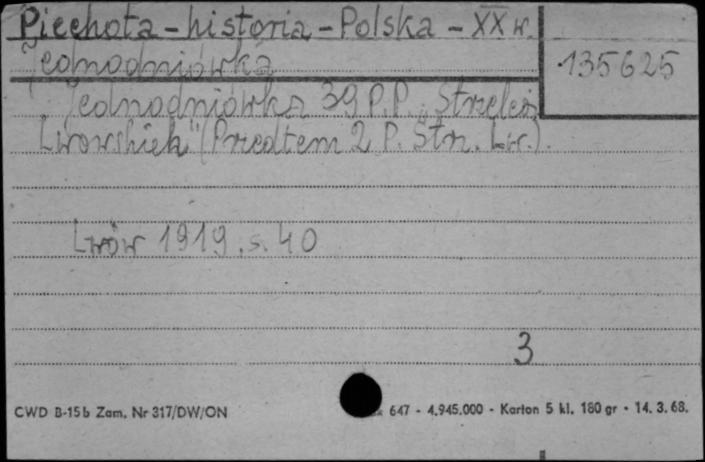 Piechota - historia - Polska - XX w.
135625
Jednodniówka
Jednodniówka 39 P.P. "Strzelców
Lwowskich" (Przedtem 2 P. Strz. Lw.).
Lwów 1919, s. 40
3
CWD B-15b Zam. Nr 317/DW/ON
647 - 4.945.000 - Karton 5 kl. 180 gr - 14. 3. 68.